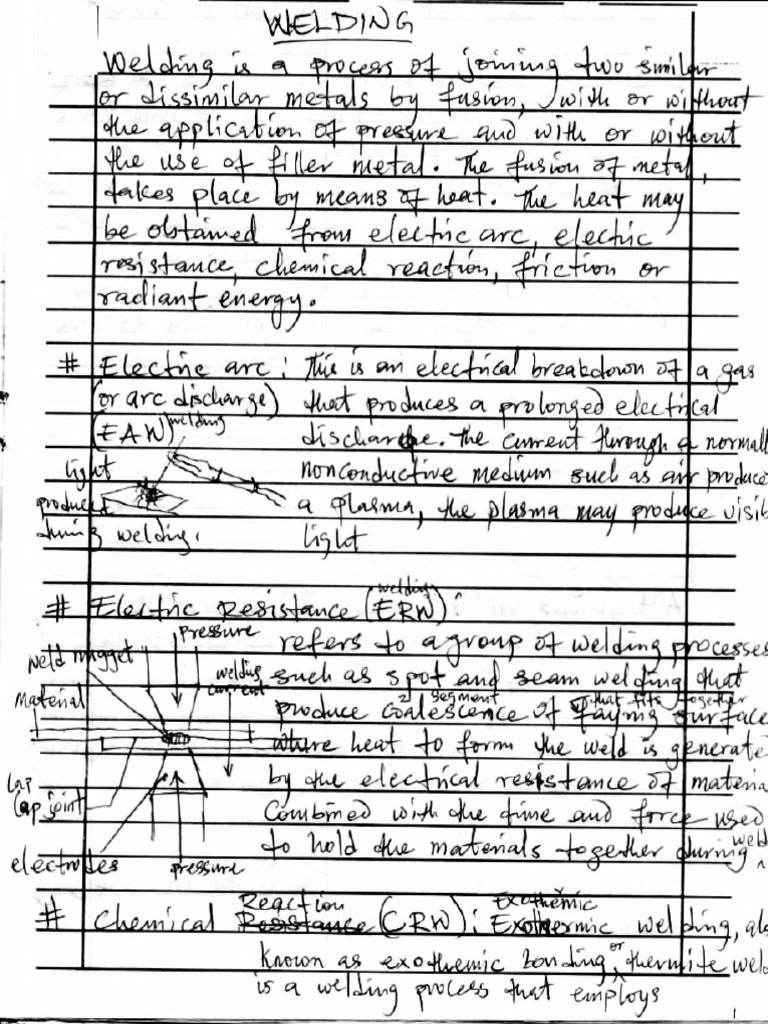 WELDING
Welding is a process of joining two similar
or dissimilar metals by fusion, with or without
the application of pressure and with or without
the use of filler metal. The fusion of metal,
takes place by means of heat. The heat may
be obtained from electric arc, electric
resistance, chemical reaction, friction or
radiant energy.
# Electric arc : This is an electrical breakdown of a gas
(or arc discharge) that produces a prolonged electrical
(EAW) welding discharge. The current through a normall
light nonconductive medium such as air produce
produced a plasma, the plasma may produce visib
during welding. light
# Electric Resistance welding (ERW) :
pressure refers to a group of welding processes
weld nugget welding current such as spot and seam welding that
material produce coalescence of segment that fits together faying surface
where heat to form the weld is generate
by the electrical resistance of materia
Lap lap joint combined with the time and force used
to hold the materials together during weld
electrodes pressure
# Chemical Reaction Resistance (CRW) : Exothemic Exothermic welding, als
known as exothemic bonding, or thermite weld
is a welding process that employs
1